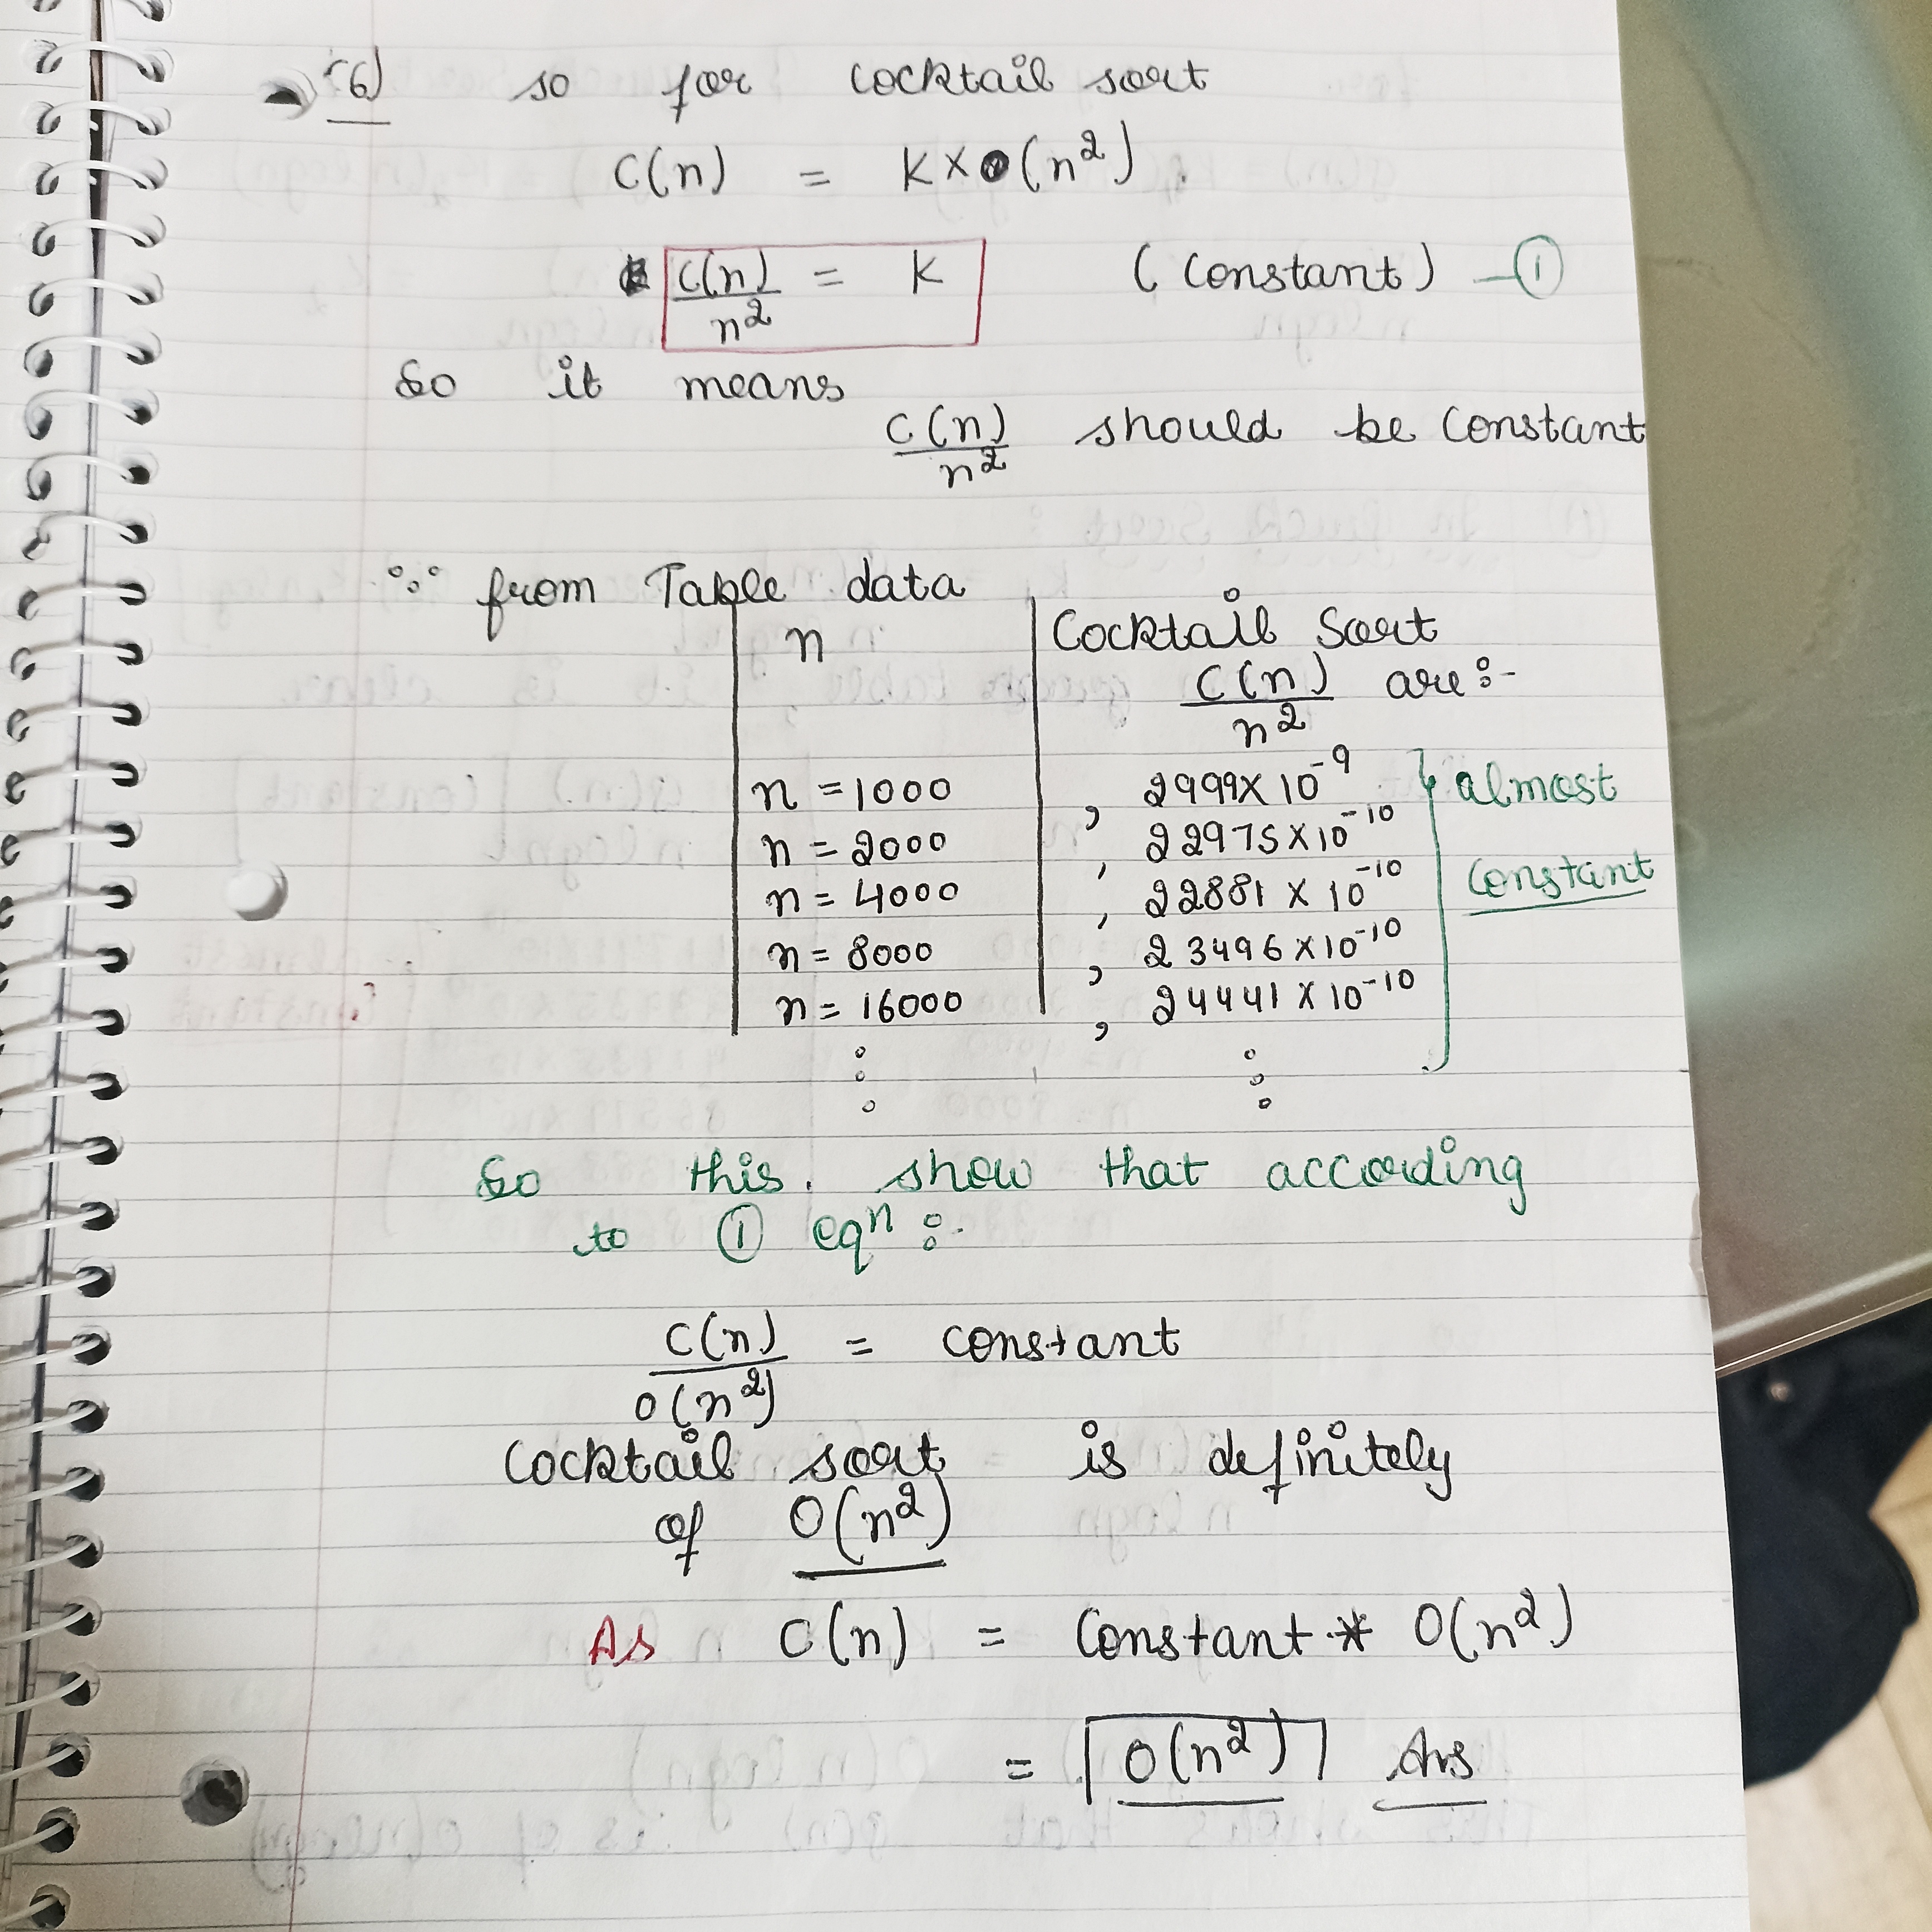 (6) so for cocktail sort
C(n) = K×O(n²).
C(n)/n² = K (Constant) — ①
So it means
C(n)/n² should be constant
∵ from Table data
n | Cocktail Sort
C(n)/n² are :-
n = 1000 , 2999×10⁻⁹ almost
n = 2000 , 22975×10⁻¹⁰
n = 4000 , 22881×10⁻¹⁰ constant
n = 8000 , 23496×10⁻¹⁰
n = 16000 , 24441×10⁻¹⁰
⋮ ⋮
So this. show that according
to ① eqⁿ :-
C(n)/O(n²) = constant
Cocktail sort is definitely
of O(n²)
As C(n) = Constant * O(n²)
= O(n²) Ans